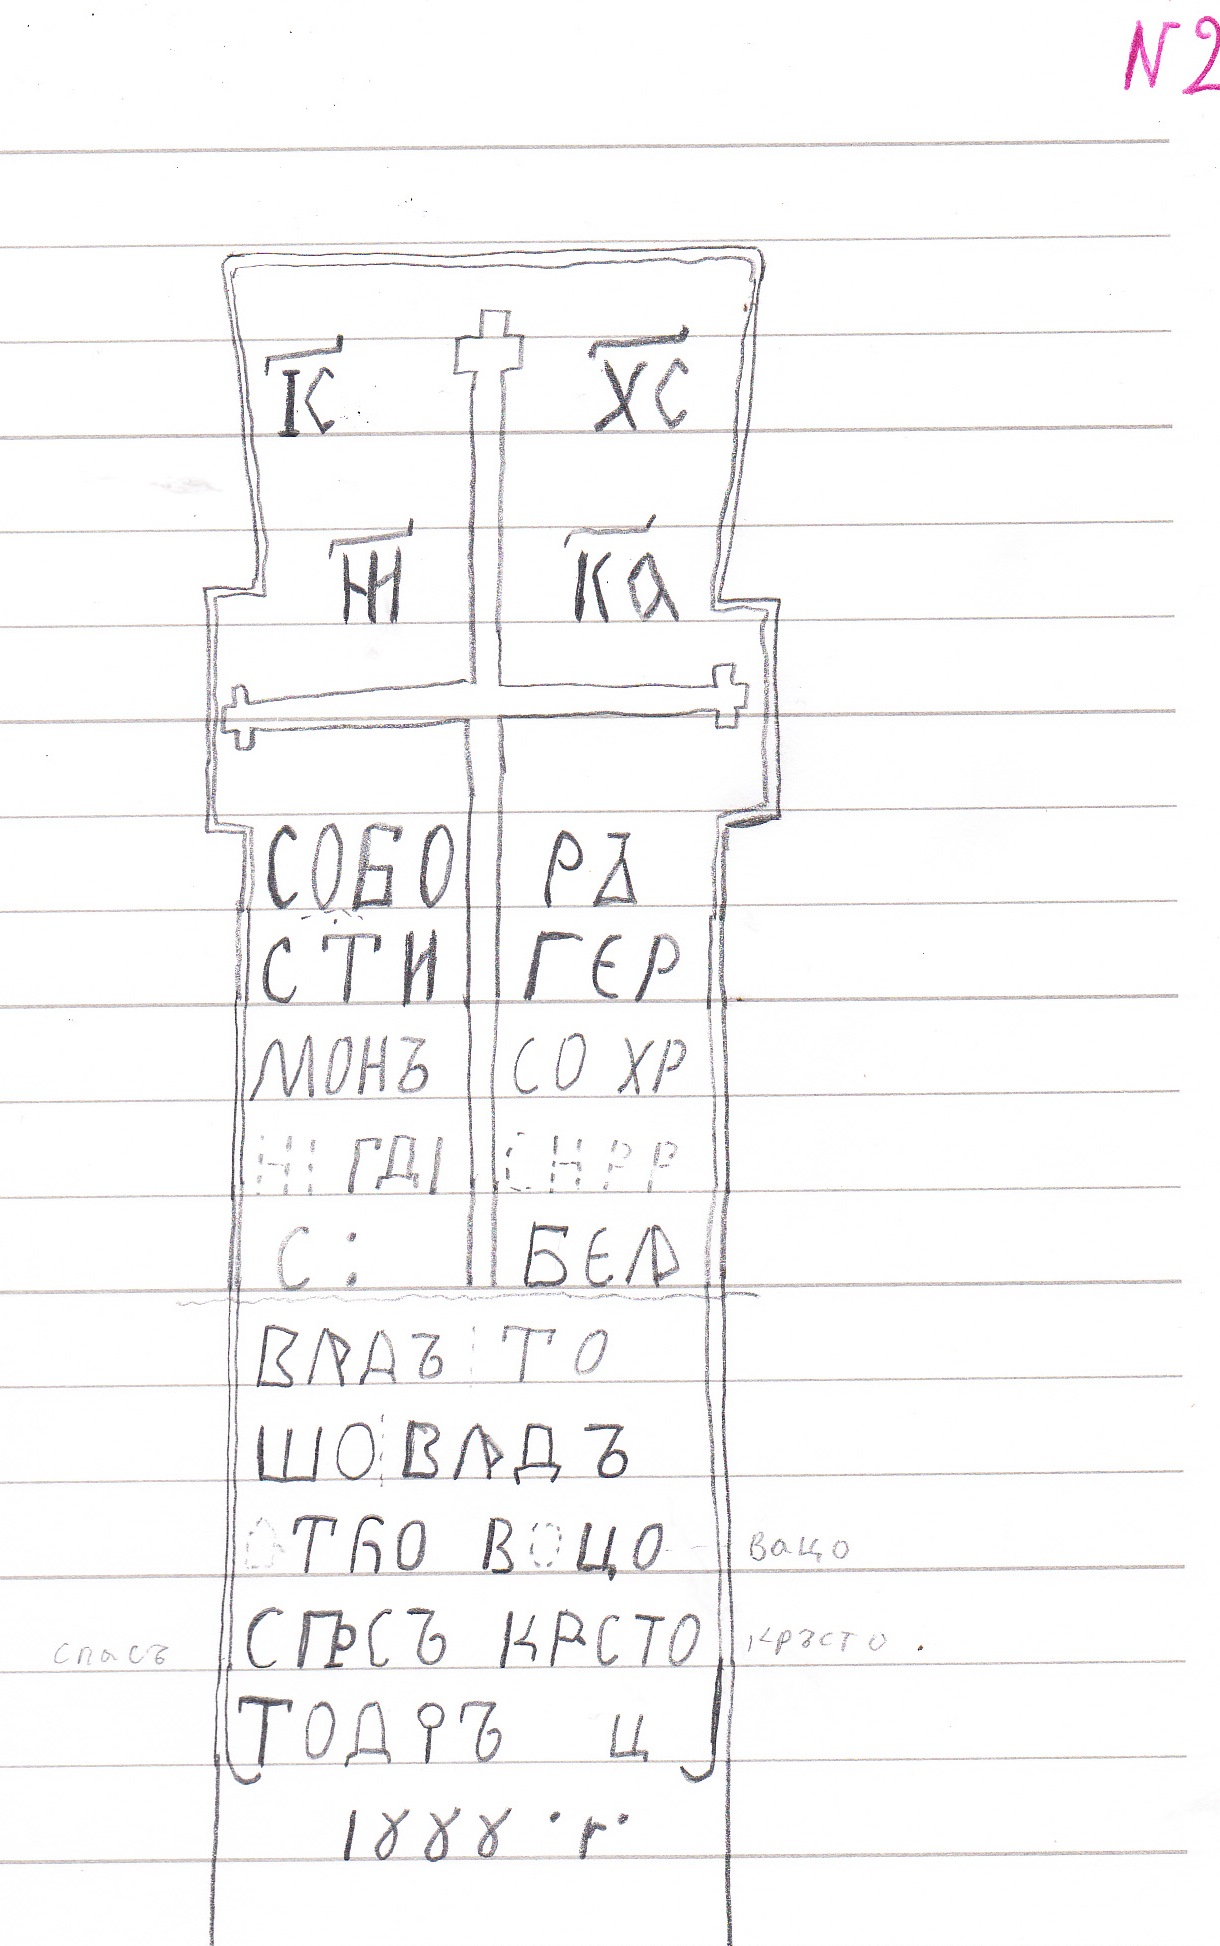 N 2
ІС ХС
НИ КА
СОБО РЪ
СТИ ГЕР
МОНЪ СО ХР
НІ ГДІ СНРР
С: БЕЛ
ВЛАДЪ ТО
ШО ВЛАДЪ
АТЋО ВОЦО вацо
спасъ СПАСЪ КРСТО кръсто.
ТОДОРЪ Ц
1888 • г •